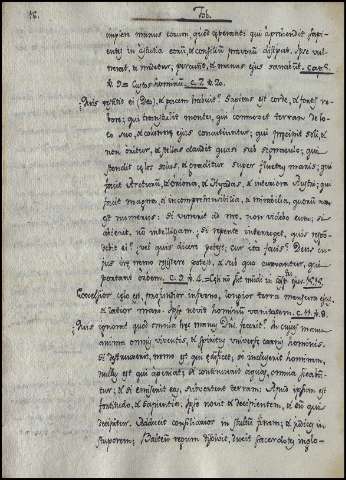 18. Job.
impleri manus eorum, quod operantur: qui apprehendit sapi-
entes in astutia eorum, & consilium pravorum dissipat. Ipse vul-
nerat, & medetur; percutit, & manus ejus sanabunt. Cap. 5.
Custos hominum. c. 7. 20.
Quis restitit ei (Deo), & pacem habuit? Sapiens est corde, & fortis ro-
bore; qui transtulit montes, qui commovet terram de lo-
co suo, & columnae ejus concutiuntur; qui praecipit soli, &
non oritur, & stellas claudit quasi sub signaculo; qui
extendit caelos solus, & graditur super fluctus maris; qui
facit Arcturum, & Oriona, & Hyadas, & interiora Austri; qui
facit magna, & incomprehensibilia, & mirabilia, quorum non
est numerus: si venerit ad me, non videbo eum; si
abierit, non intelligam. Si repente interroget, quis respon-
debit ei? vel quis dicere potest, cur ita facis? Deus cu-
jus irae nemo resistere potest, & sub quo curvantur, qui
portant orbem. c. 9. 4.
Excelsior caelo est, profundior inferno, longior terra mensura ejus,
& latior mari. Ipse novit hominum vanitatem. c. 11. 8.
Quis ignorat quod omnia haec manus Dni fecerit? In cujus manu
anima omnis viventis, & spiritus universae carnis hominis.
Si destruxerit, nemo est qui aedificet; si incluserit hominem,
nullus est qui aperiat; si continuerit aquas, omnia siccabun-
tur; & si emiserit eas, subvertent terram. Apud ipsum est
fortitudo, & sapientia. Ipse novit & decipientem, & eum qui
decipitur. Adducit consiliarios in stultum finem; & judices in
stuporem; Balteum regum dissolvit, ducit sacerdotes inglo-